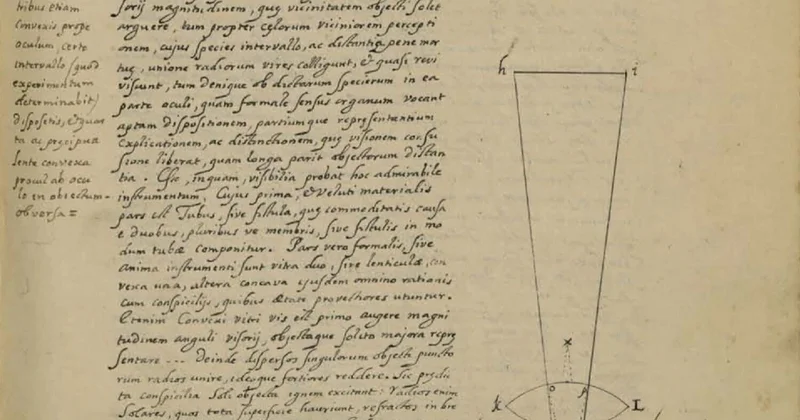 tribus etiam
convexis prope
oculum certo
intervallo (quod
experimentum
determinabit)
dispositis, et quar
ta ac præcipua
lente convexa
procul ab ocu
lo in obiectum
obversa =
sorij magnitudinem, quæ vicinitatem objecti solet
arguere, tum propter cælorum viciniorem percepti
onem, cujus species intervallo, ac distantia pene mor
tuæ, unione radiorum vires colligunt, et quasi revi
viscunt, tum denique ob dictarum specierum in ea
parte oculi, quam formale sensus organum vocant
aptam dispositionem, partiumque repræsentantium
explicationem, ac distinctionem, quæ visionem confu
sione liberat, quam longa parit objectorum distan
tia. Esse, inquam, visibilia probat hoc admirabile
instrumentum, Cujus prima, et veluti materialis
pars est Tubus, sive fistula, quæ commoditatis causa
e duobus, pluribus ve membris, sive fistulis in mo
dum tubæ componitur. Pars vero formalis, sive
anima instrumenti sunt vitra duo, sive lenticulæ, con
vexa una, altera concava ejusdem omnino rationis
cum conspicilijs, quibus ætate provectiores utuntur.
Etenim Convexi vitri vis est primo augere magni
tudinem anguli visorij, objectaque solito majora repræ
sentare --- Deinde dispersos singulorum objecti puncto
rum radios unire, ideoque fortiores reddere. Sic prædic
ta conspicilia Soli objecta ignem excitant: radios enim
Solares, quos tota superficie hauriunt, refractos in bre
h i
o
k L